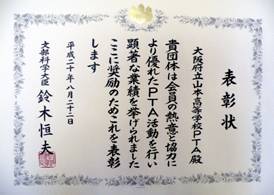 表彰状
大阪府立山本高等学校PTA殿
貴団体は会員の熱意と協力に
より優れたPTA活動を行い
顕著な業績を挙げられました
ここに奨励のためこれを表彰
します
平成二十年八月二十二日
文部科学大臣 鈴木恒夫